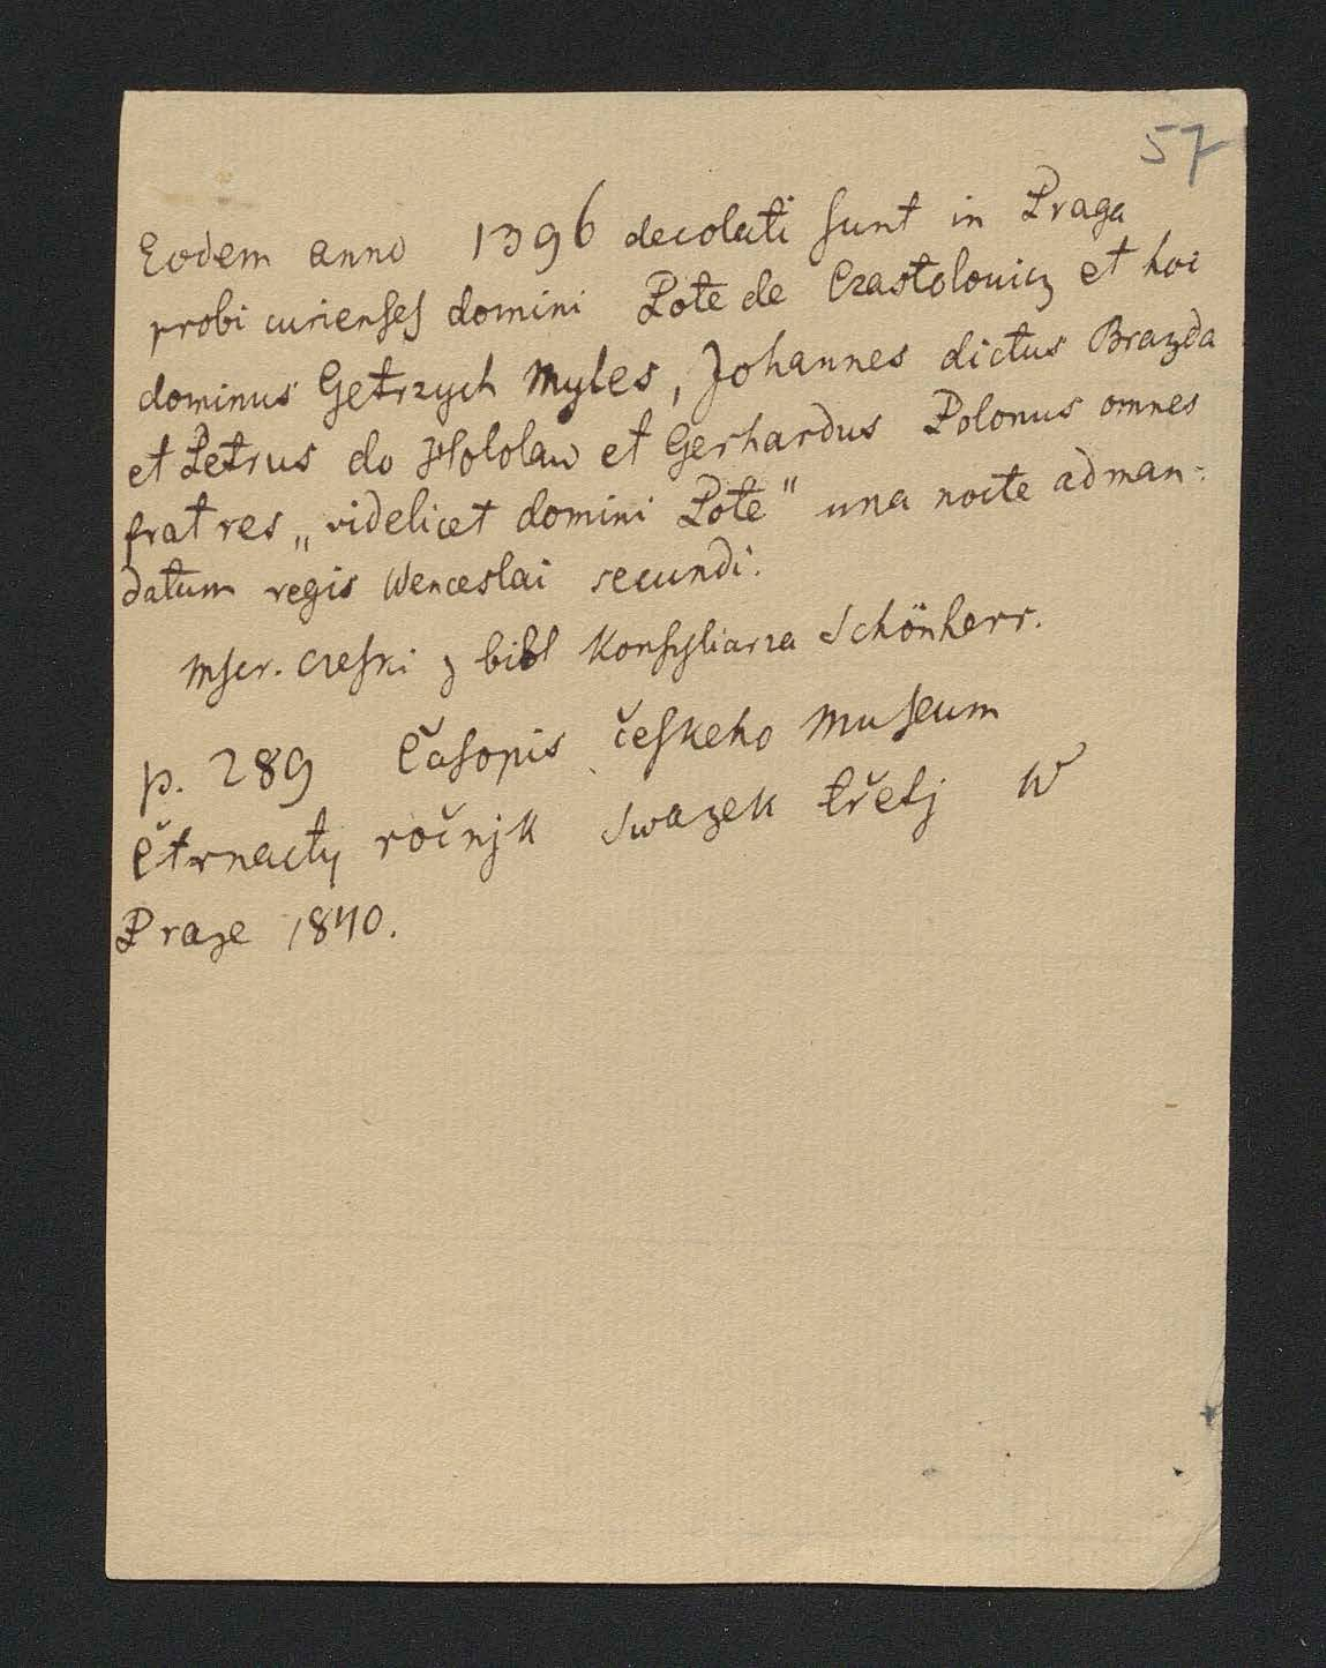 57
Eodem anno 1396 decolati sunt in Praga
probi curienses domini Pote de Czastolowicz et hoc
dominus Getrzych Myles, Johannes dictus Brazda
et Petrus do Hololaw et Gerhardus Polonus omnes
fratres „videlicet domini Pote" una nocte ad man-
datum regis Wenceslai secundi.
Mscr. czeski z bibl Konsyliarza Schönherr.
p. 289 Časopis českeho Museum
Čtrnacty ročnjk Swazek třetj W
Praze 1840.